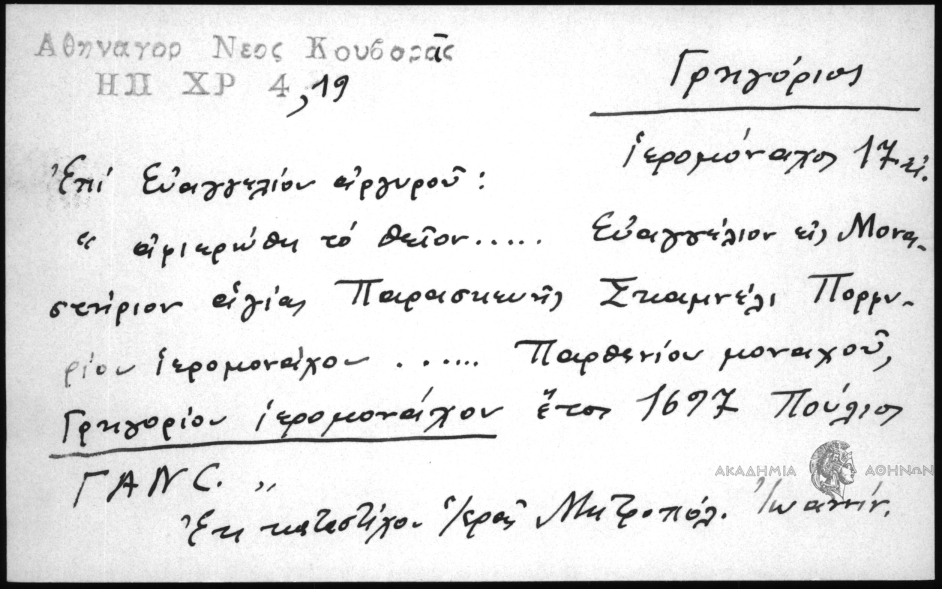 Αθηναγορ Νεος Κουβαρᾶς
ΗΠ ΧΡ 4, 19
Γρηγόριος
ἱερομόναχος 17 αἰ.
Ἐπί Εὐαγγελίου ἀργυροῦ :
“ ἀφιερώθη τό θεῖον..... Εὐαγγέλιον εἰς Μονα-
στήριον ἁγίας Παρασκευῆς Σκαμνέλι Πορφυ-
ρίου ἱερομονάχου ...... Παρθενίου μοναχοῦ,
Γρηγορίου ἱερομονάχου ἔτος 1697 Πούλιος
ΓΑΝC. „
Ἐκ καταστίχου Ἱερᾶς Μητροπόλ. Ἰωαννίν.
ΑΚΑΔΗΜΙΑ ΑΘΗΝΩΝ